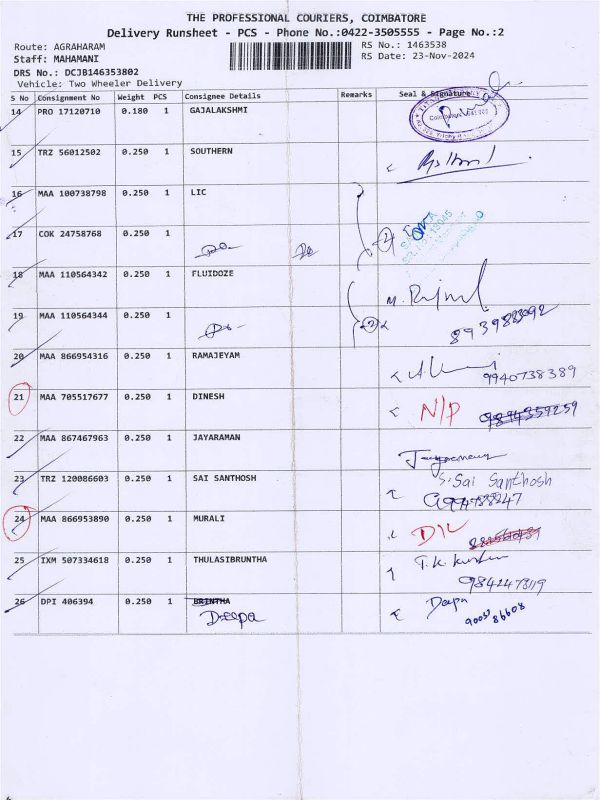 THE PROFESSIONAL COURIERS, COIMBATORE
Delivery Runsheet - PCS - Phone No.:0422-3505555 - Page No.:2
Route: AGRAHARAM
RS No.: 1463538
Staff: MAHAMANI
RS Date: 23-Nov-2024
DRS No.: DCJB146353802
Vehicle: Two Wheeler Delivery
S No Consignment No Weight PCS Consignee Details Remarks Seal & Signature
14 PRO 17120710 0.180 1 GAJALAKSHMI
15 TRZ 56012502 0.250 1 SOUTHERN
16 MAA 100738798 0.250 1 LIC
17 COK 24758768 0.250 1 Do Do 2
18 MAA 110564342 0.250 1 FLUIDOZE
19 MAA 110564344 0.250 1 Do 2 8939883092
20 MAA 866954316 0.250 1 RAMAJEYAM
9940738389
21 MAA 705517677 0.250 1 DINESH N/P 9894359259
22 MAA 867467963 0.250 1 JAYARAMAN
23 TRZ 120086603 0.250 1 SAI SANTHOSH S. Sai Santhosh
24 MAA 866953890 0.250 1 MURALI D/L
25 IXM 507334618 0.250 1 THULASIBRUNTHA T.K.
26 DPI 406394 0.250 1 BRINTHA Deepa
Deepa